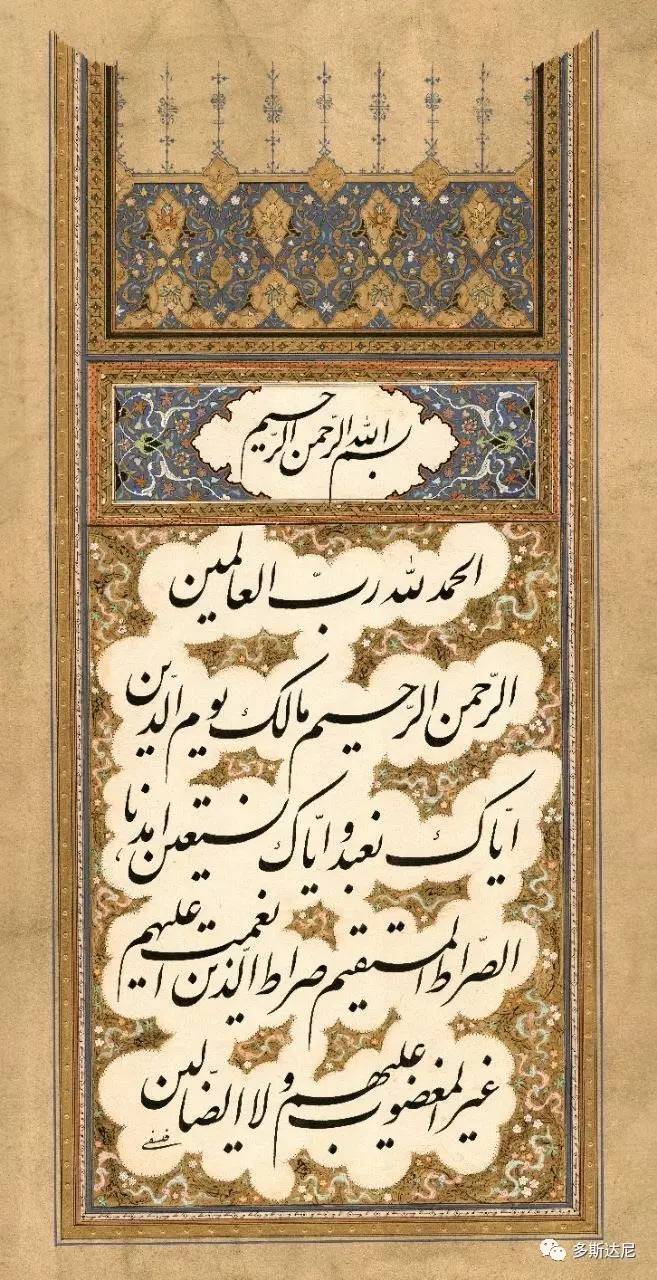 بسم الله الرّحمن الرّحيم
الحمد لله ربّ العالمين
الرّحمن الرّحيم مالك يوم الدّين
ايّاك نعبد و ايّاك نستعين اهدنا
الصّراط المستقيم صراط الّذين انعمت عليهم
غير المغضوب عليهم و لا الضّالّين
多斯达尼